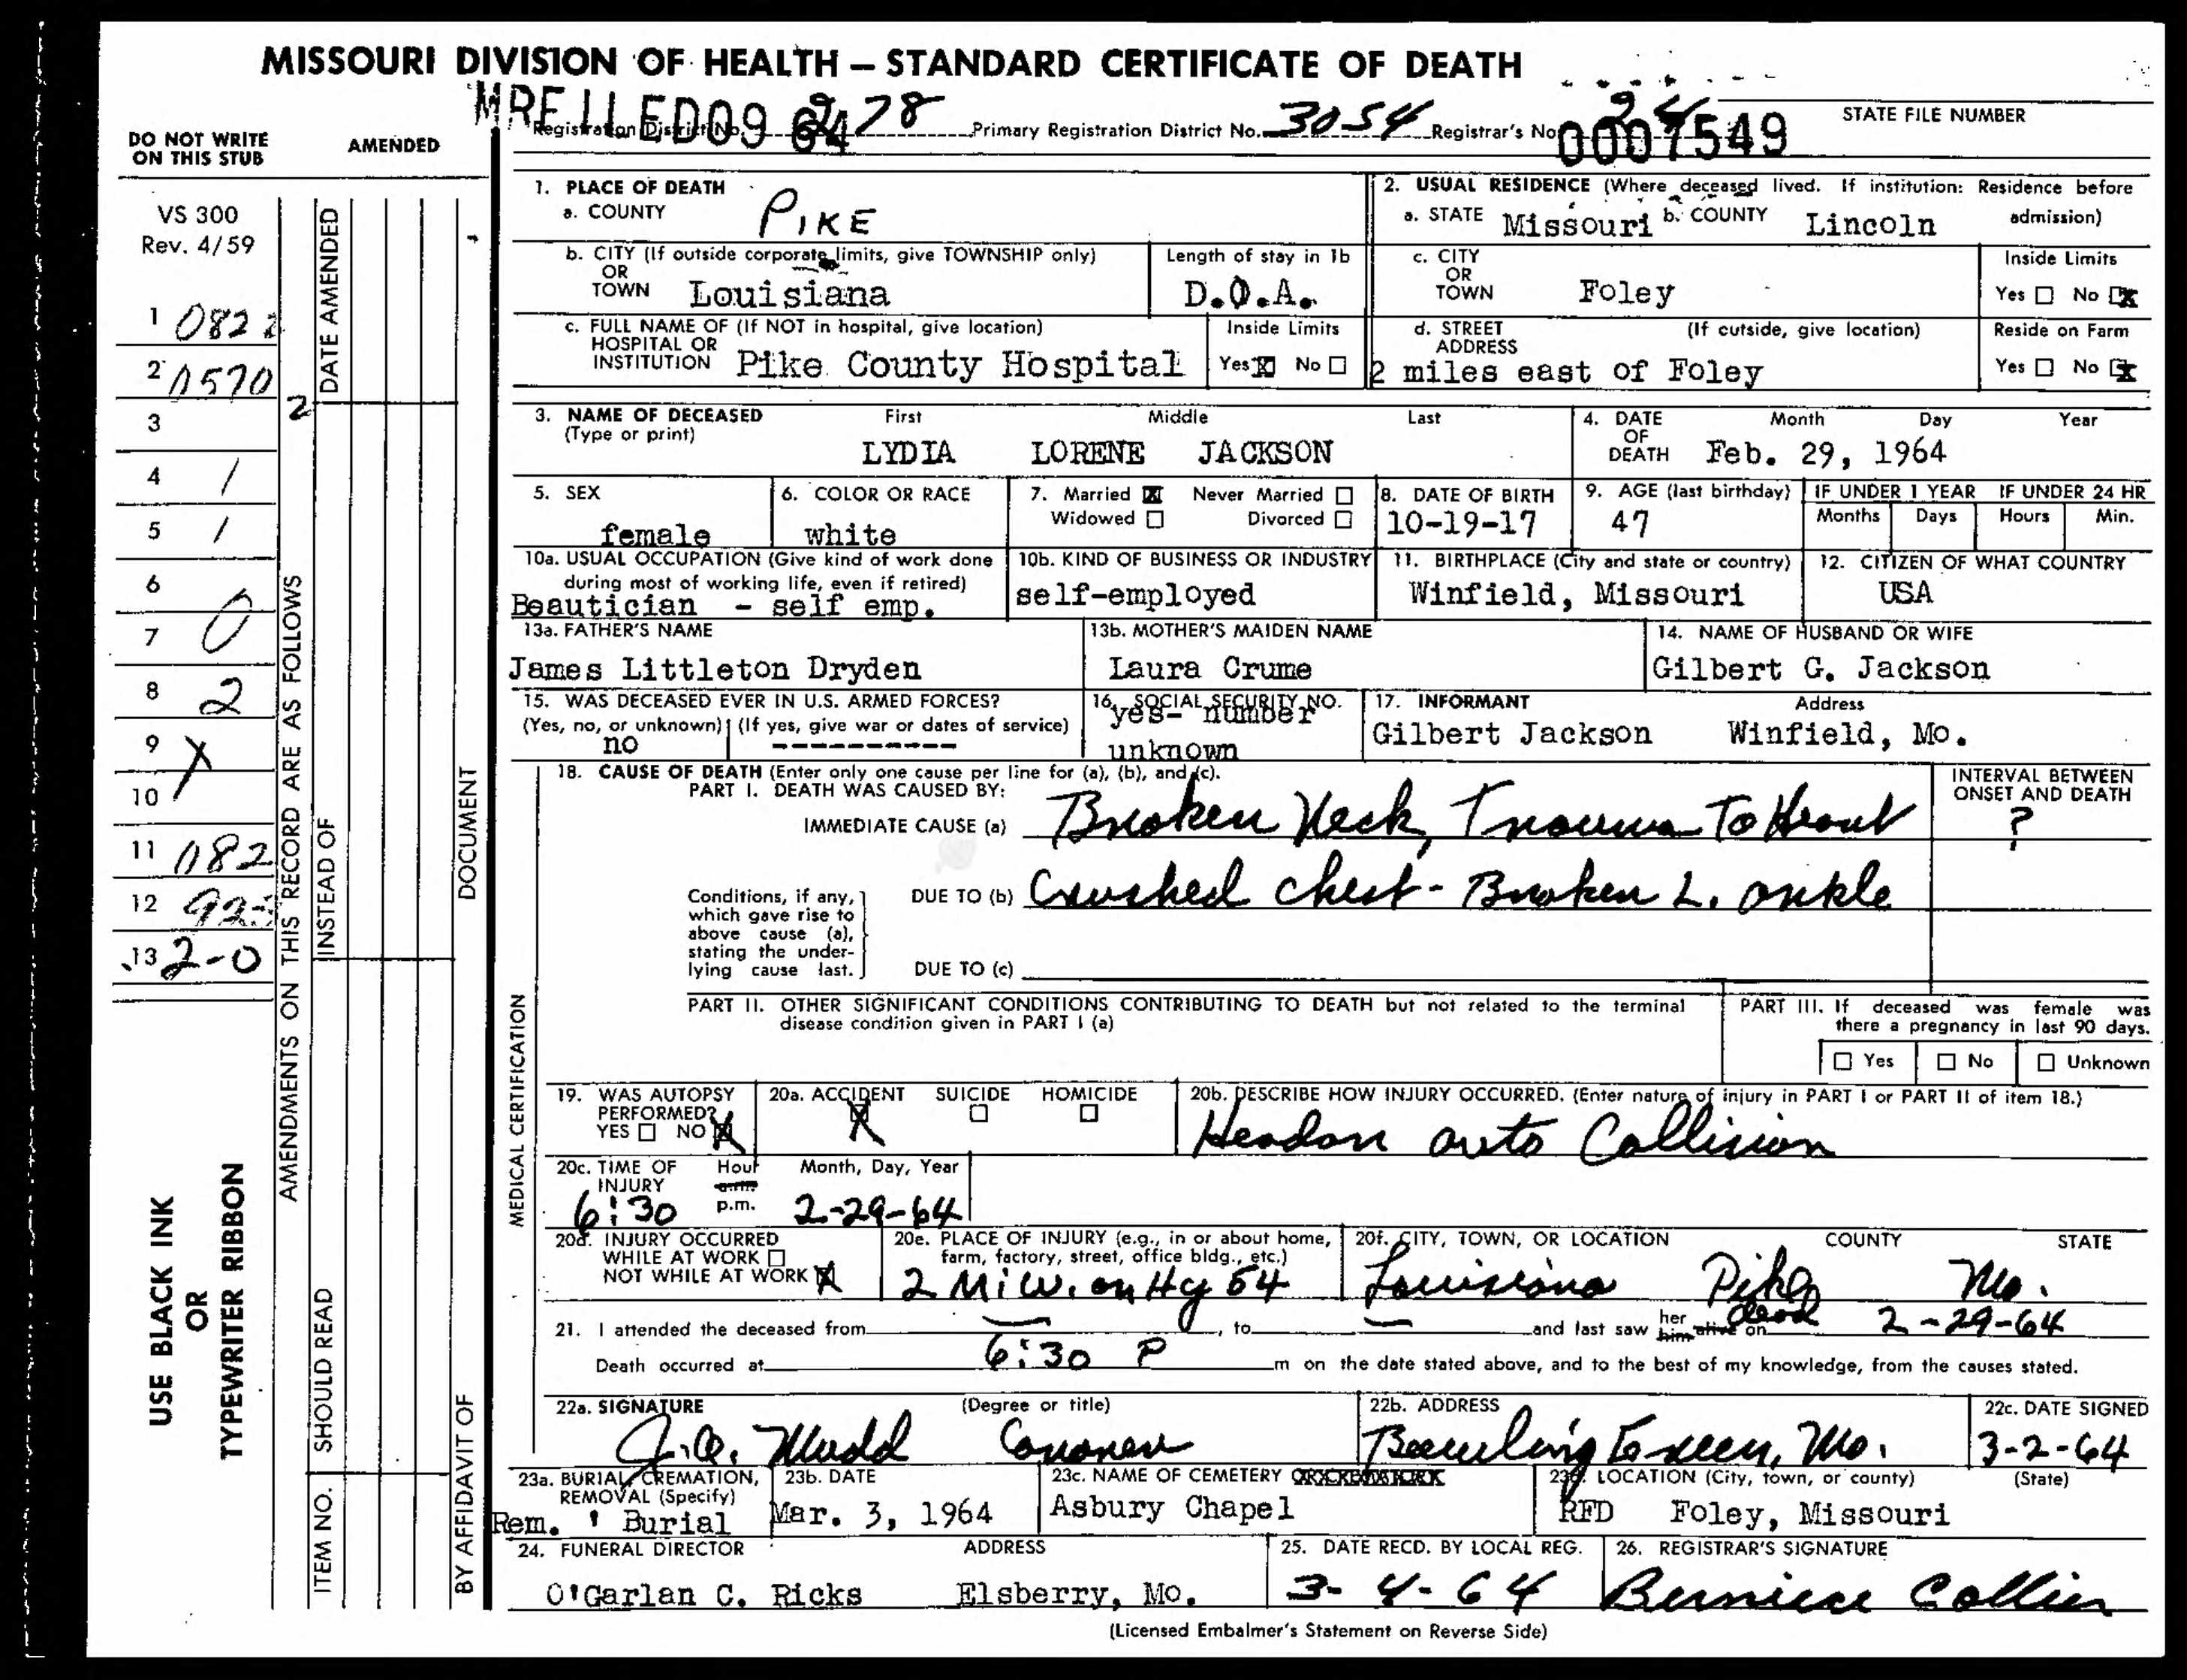 MISSOURI DIVISION OF HEALTH — STANDARD CERTIFICATE OF DEATH
FILED
Registration District No. 278 Primary Registration District No. 3054 Registrar's No. 24 0007549 STATE FILE NUMBER
DO NOT WRITE ON THIS STUB
AMENDED
VS 300
Rev. 4/59
1
2 0570
3
4 1
5 1
6
7 0
8 2
9 X
10
11 082
12
13 2-0
USE BLACK INK
OR
TYPEWRITER RIBBON
AMENDMENTS ON THIS RECORD ARE AS FOLLOWS 2
DATE AMENDED
INSTEAD OF
DOCUMENT
ITEM NO. SHOULD READ
BY AFFIDAVIT OF
1. PLACE OF DEATH
a. COUNTY PIKE
2. USUAL RESIDENCE (Where deceased lived. If institution: Residence before admission)
a. STATE Missouri b. COUNTY Lincoln
b. CITY (If outside corporate limits, give TOWNSHIP only)
OR
TOWN Louisiana
Length of stay in 1b
D.O.A.
c. CITY
OR
TOWN Foley
Inside Limits
Yes No X
c. FULL NAME OF (If NOT in hospital, give location)
HOSPITAL OR
INSTITUTION Pike County Hospital
Inside Limits
Yes X No
d. STREET (If outside, give location)
ADDRESS
2 miles east of Foley
Reside on Farm
Yes No X
3. NAME OF DECEASED First Middle Last
(Type or print)
LYDIA LORENE JACKSON
4. DATE Month Day Year
OF
DEATH Feb. 29, 1964
5. SEX
female
6. COLOR OR RACE
white
7. Married X Never Married
Widowed Divorced
8. DATE OF BIRTH
10-19-17
9. AGE (last birthday)
47
IF UNDER 1 YEAR IF UNDER 24 HR
Months Days Hours Min.
10a. USUAL OCCUPATION (Give kind of work done
during most of working life, even if retired)
Beautician - self emp.
10b. KIND OF BUSINESS OR INDUSTRY
self-employed
11. BIRTHPLACE (City and state or country)
Winfield, Missouri
12. CITIZEN OF WHAT COUNTRY
USA
13a. FATHER'S NAME
James Littleton Dryden
13b. MOTHER'S MAIDEN NAME
Laura Crume
14. NAME OF HUSBAND OR WIFE
Gilbert G. Jackson
15. WAS DECEASED EVER IN U.S. ARMED FORCES?
(Yes, no, or unknown) (If yes, give war or dates of service)
no ----------
16. SOCIAL SECURITY NO.
yes- number
unknown
17. INFORMANT Address
Gilbert Jackson Winfield, Mo.
MEDICAL CERTIFICATION
18. CAUSE OF DEATH (Enter only one cause per line for (a), (b), and (c).
PART I. DEATH WAS CAUSED BY:
IMMEDIATE CAUSE (a) Broken Neck, Trauma To Heart
INTERVAL BETWEEN
ONSET AND DEATH
?
Conditions, if any,
which gave rise to
above cause (a),
stating the under-
lying cause last.
DUE TO (b) Crushed chest - Broken L. ankle
DUE TO (c)
PART II. OTHER SIGNIFICANT CONDITIONS CONTRIBUTING TO DEATH but not related to the terminal
disease condition given in PART I (a)
PART III. If deceased was female was
there a pregnancy in last 90 days.
Yes No Unknown
19. WAS AUTOPSY
PERFORMED?
YES NO X
20a. ACCIDENT SUICIDE HOMICIDE
X
20b. DESCRIBE HOW INJURY OCCURRED. (Enter nature of injury in PART I or PART II of item 18.)
Headon auto Collision
20c. TIME OF Hour Month, Day, Year
INJURY a.m.
6:30 p.m. 2-29-64
20d. INJURY OCCURRED
WHILE AT WORK
NOT WHILE AT WORK X
20e. PLACE OF INJURY (e.g., in or about home,
farm, factory, street, office bldg., etc.)
2 Mi W. on Hy 54
20f. CITY, TOWN, OR LOCATION COUNTY STATE
Louisiana Pike Mo.
21. I attended the deceased from — , to — and last saw her him alive on dead 2-29-64
Death occurred at 6:30 P m on the date stated above, and to the best of my knowledge, from the causes stated.
22a. SIGNATURE (Degree or title)
Mudd Coroner
22b. ADDRESS
Bowling Green, Mo.
22c. DATE SIGNED
3-2-64
23a. BURIAL, CREMATION,
REMOVAL (Specify)
Rem. ' Burial
23b. DATE
Mar. 3, 1964
23c. NAME OF CEMETERY
Asbury Chapel
23d. LOCATION (City, town, or county) (State)
RFD Foley, Missouri
24. FUNERAL DIRECTOR ADDRESS
O'Garlan C. Ricks Elsberry, Mo.
25. DATE RECD. BY LOCAL REG.
3-4-64
26. REGISTRAR'S SIGNATURE
Berniece Collier
(Licensed Embalmer's Statement on Reverse Side)